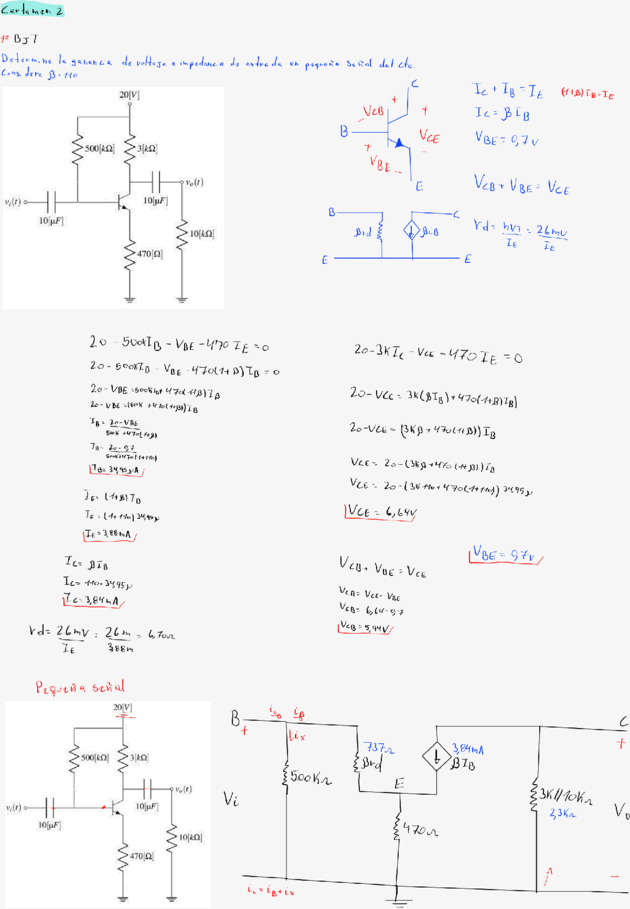 Certamen 2
1º BJT
Determine la ganancia de voltaje e impedancia de entrada en pequeña señal del cto.
Considere β=110
20[V]
500[kΩ]
3[kΩ]
vo(t)
vi(t)
10[μF]
10[μF]
10[kΩ]
470[Ω]
C
VCB + +
B VCE
+ VBE - -
E
IC + IB = IE (1+β)IB=IE
IC = βIB
VBE = 0,7v
VCB + VBE = VCE
B C
βrd βiB
E E
rd = nVT/IE = 26mV/IE
20 - 500KIB - VBE - 470 IE = 0
20 - 500KIB - VBE - 470(1+β)IB = 0
20 - VBE = 500KIB + 470(1+β)IB
20 - VBE = (500K + 470(1+β))IB
IB = 20-VBE / 500K+470(1+β)
IB = 20-0,7 / 500K+470(1+110)
IB = 34,95μA
IE = (1+β)IB
IE = (1+110)34,95μ
IE = 3,88mA
IC = βIB
IC = 110·34,95μ
IC = 3,84mA
rd = 26mV/IE = 26m/3,88m = 6,70Ω
20 - 3KIC - VCE - 470 IE = 0
20 - VCE = 3K(βIB) + 470(1+β)IB
20 - VCE = (3Kβ + 470(1+β))IB
VCE = 20 - (3Kβ + 470(1+β))IB
VCE = 20 - (3K·110 + 470(1+110))34,95μ
VCE = 6,64V
VCB + VBE = VCE
VCB = VCE - VBE
VCB = 6,64 - 0,7
VCB = 5,94V
VBE = 0,7V
Pequeña señal
20[V]
500[kΩ]
3[kΩ]
vo(t)
vi(t)
10[μF]
10[μF]
10[kΩ]
470[Ω]
B iB C
+ ix +
737Ω 3,84mA
500KΩ βrd βIB
E
Vi 3K//10KΩ Vo
2,3KΩ
470Ω
- -
ii = iB + ix